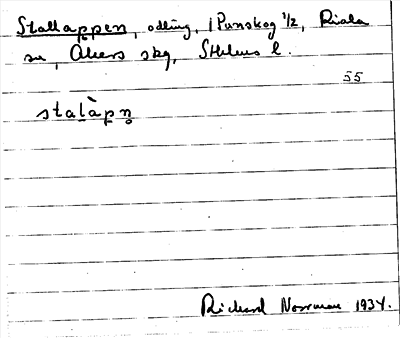 Stallappen, odling, i Punskog 1/2, Riala
sn, Åkers skg, Sthlms l.
55
stalàpn̥
Richard Norrman 1934.